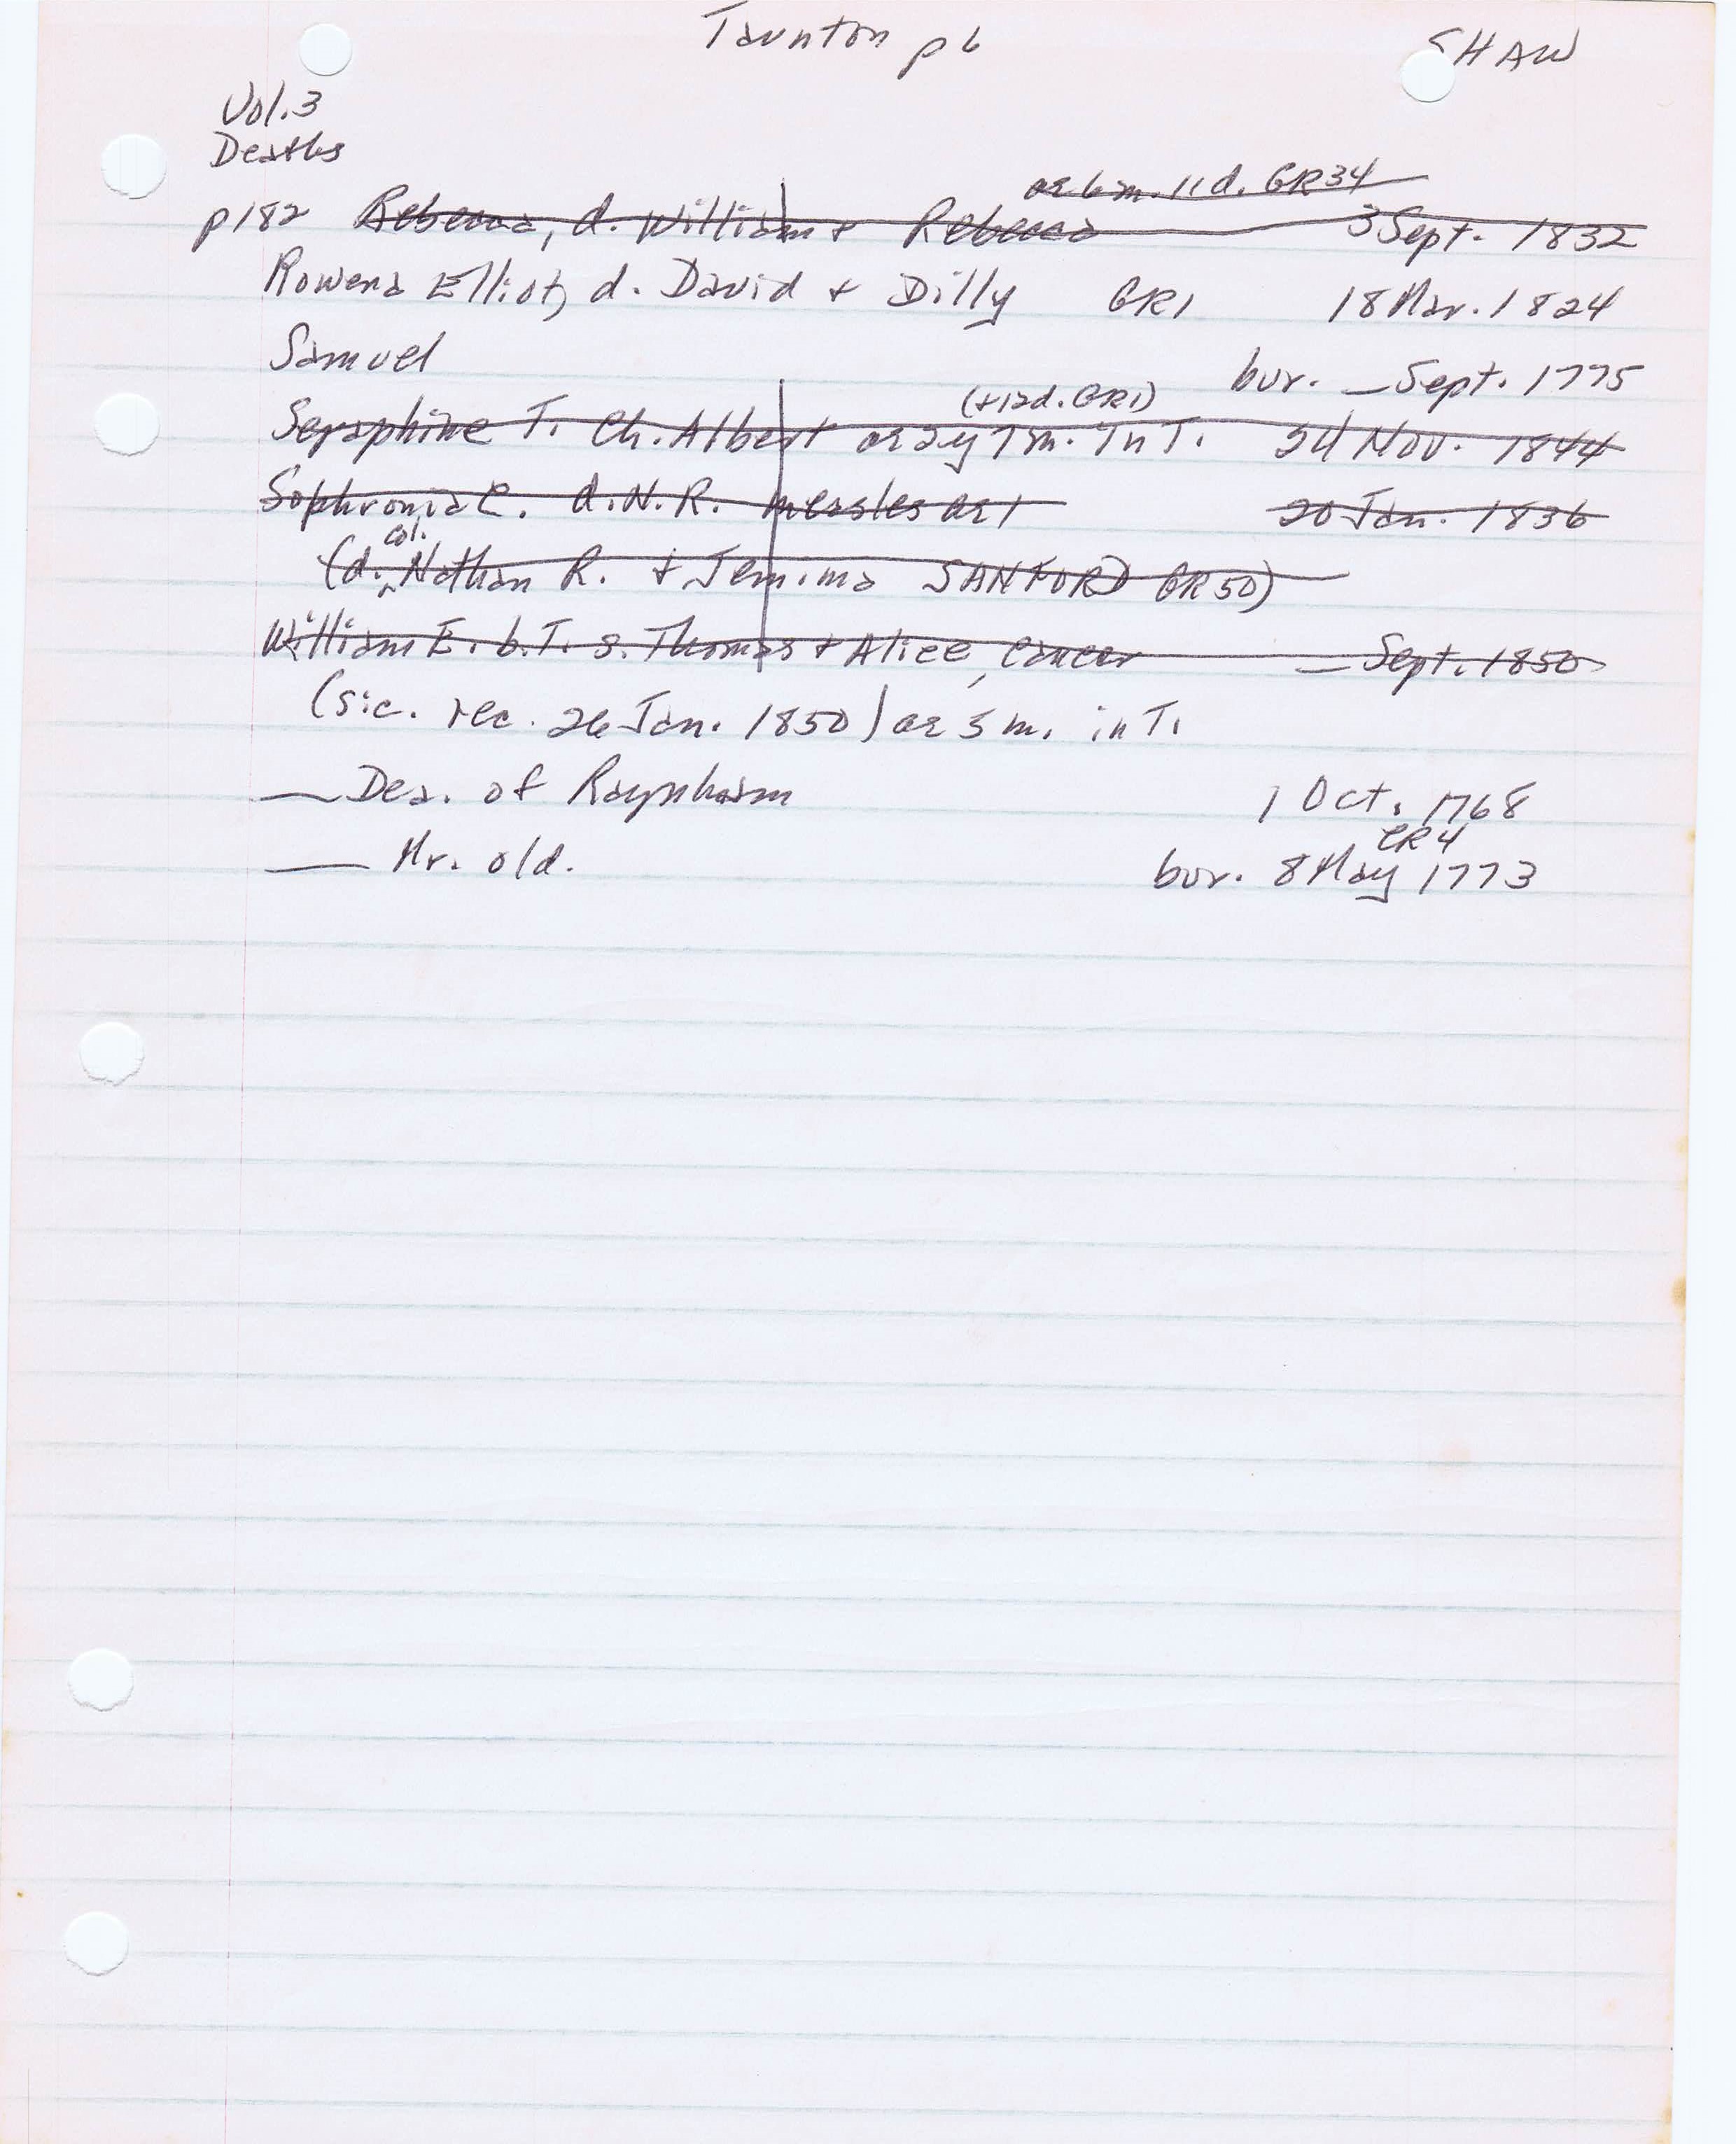 Taunton p 6 SHAW
Vol. 3
Deaths
ae 6 m. 11 d. GR34
p182 Rebecca, d. William + Rebecca 3 Sept. 1832
Rowena Elliot, d. David + Dilly GR1 18 Mar. 1824
Samuel bur. — Sept. 1775
(+12d. GR1)
Seraphine T. Ch. Albert ae 2y 7m. In T. 24 Nov. 1844
Sophronia C. d. N. R. measles ae 1 20 Jan. 1836
col.
(d. Nathan R. + Jemima SANFORD GR50)
William E. b. T. s. Thomas + Alice, Cancer — Sept. 1850
(sic. rec. 26 Jan. 1850) ae 5 m. in T.
— Dea. of Raynham 1 Oct. 1768
CR4
— Mr. old. bur. 8 May 1773